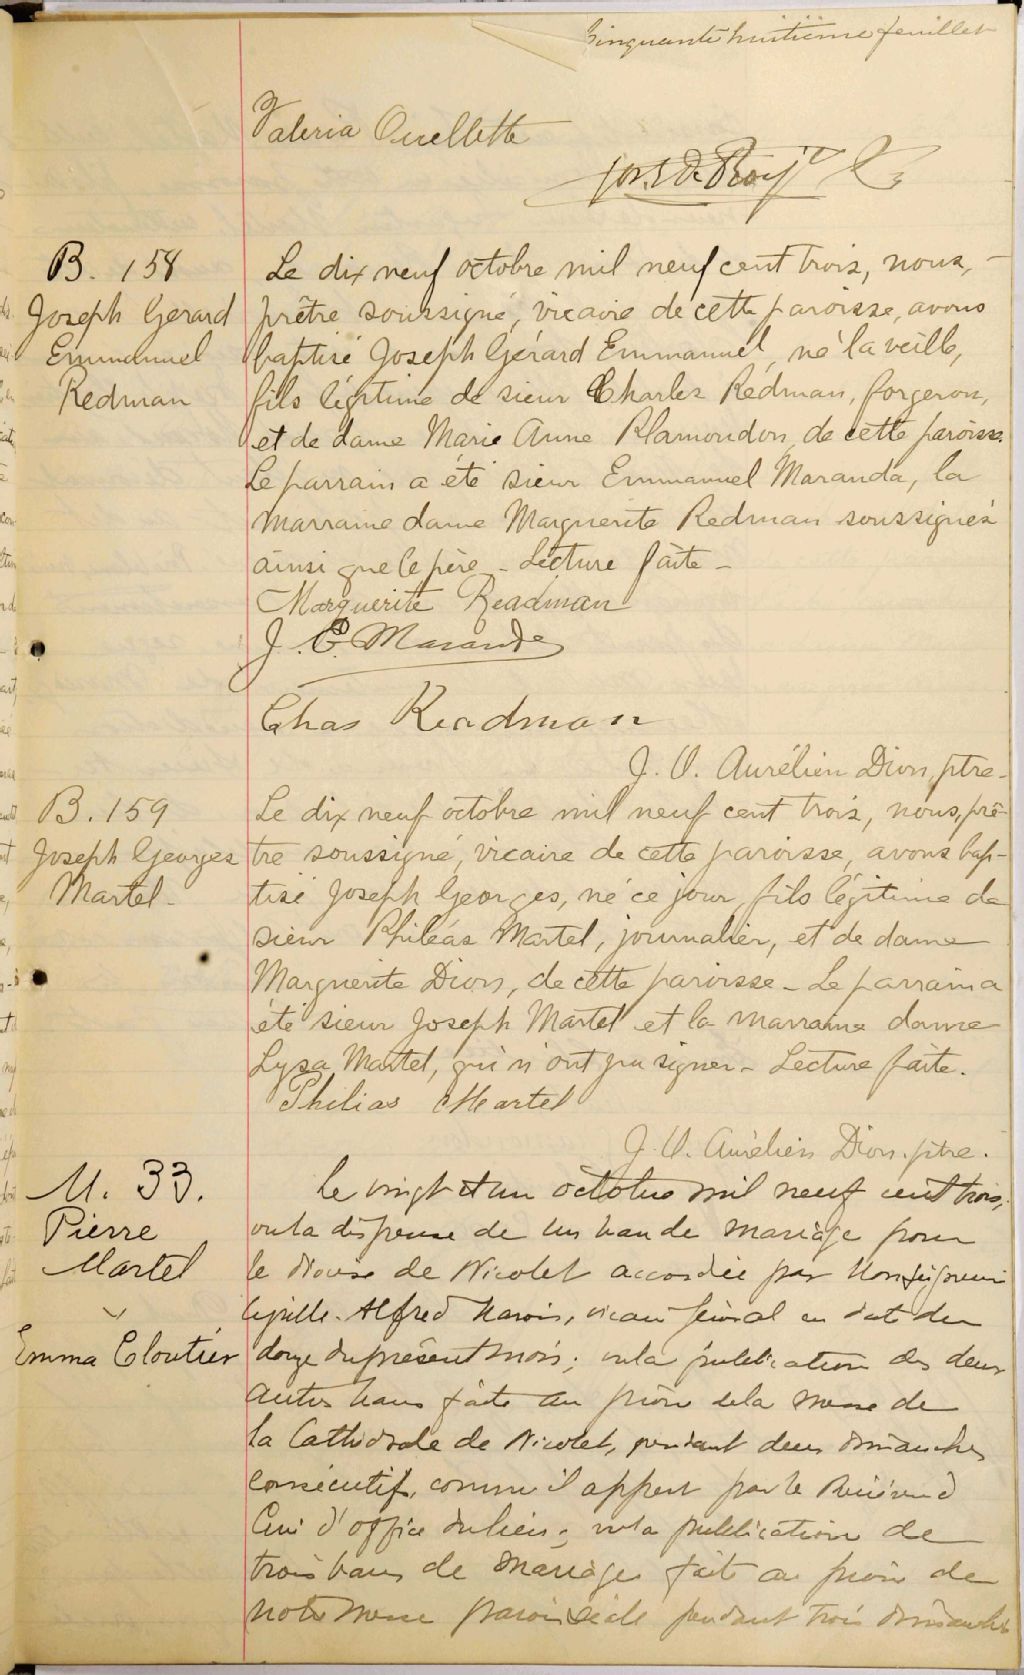 Cinquante huitième feuillet
Valeria Ouellette
B. 158
Joseph Gerard
Emmanuel
Redman
Le dix neuf octobre mil neuf cent trois, nous,
prêtre soussigné, vicaire de cette paroisse, avons
baptisé Joseph Gérard Emmanuel, né la veille,
fils légitime de sieur Charles Redman, forgeron,
et de dame Marie Anne Plamondon, de cette paroisse.
Le parrain a été sieur Emmanuel Maranda, la
marraine dame Marguerite Redman soussignés
ainsi que le père - Lecture faite -
Marguerite Readman
J. E. Maranda
Chas Readman
J. O. Aurélien Dion, ptre -
B. 159
Joseph Georges
Martel -
Le dix neuf octobre mil neuf cent trois, nous, prê-
tre soussigné, vicaire de cette paroisse, avons bap-
tisé Joseph Georges, né ce jour, fils légitime de
sieur Philéas Martel, journalier, et de dame
Marguerite Dion, de cette paroisse - Le parrain a
été sieur Joseph Martel et la marraine dame
Lysa Martel, qui n'ont pu signer - Lecture faite.
Philias Martel
J. O. Aurélien Dion, ptre.
M. 33.
Pierre
Martel
Emma Cloutier
Le vingt et un octobre mil neuf cent trois,
vu la dispense de un ban de mariage pour
le diocèse de Nicolet accordée par Monseigneur
Alfred vicaire général en date du
douze du présent mois; vu la publication des deux
autres bans faite au prône de la messe de
la Cathédrale de Nicolet, pendant deux dimanches
consécutifs, comme il appert par le Révérend
Curé d'office du lieu; vu la publication de
trois bans de mariage faite au prône de
notre messe paroissiale pendant trois dimanches